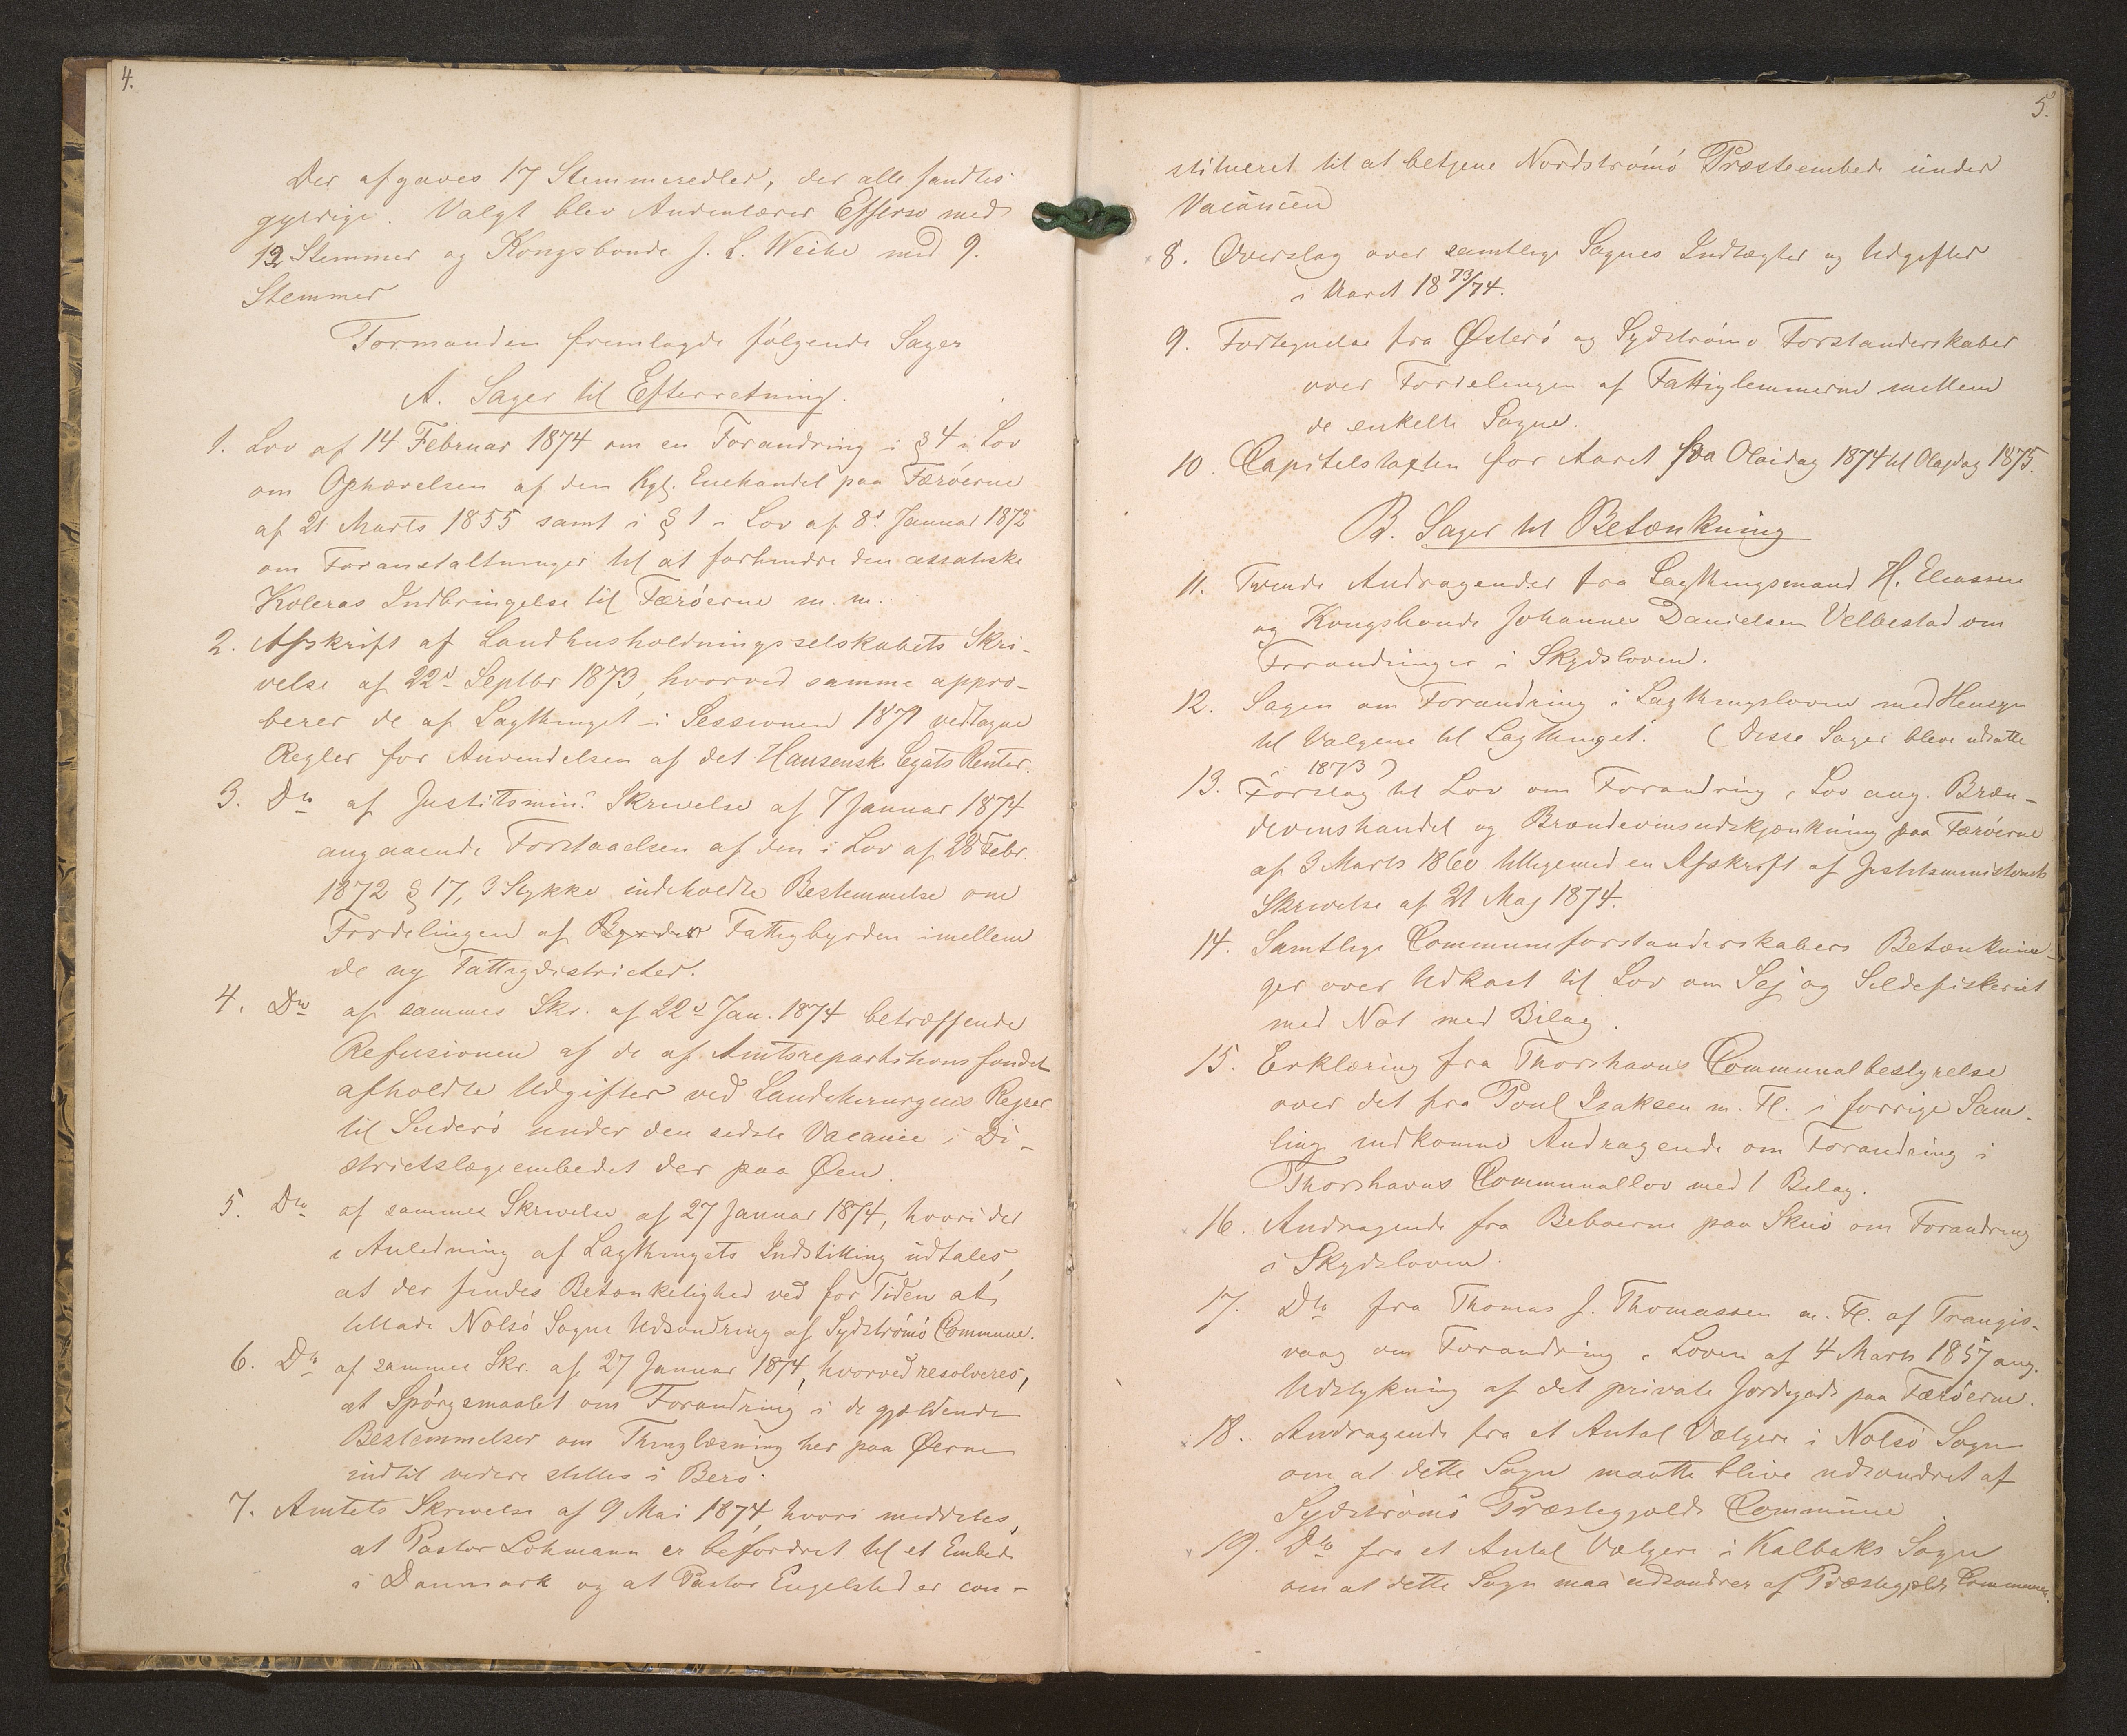 4.
Der afgaves 17 Stemmesedler, der alle fandtes
gyldige. Valgt blev Andenlærer Effersø med
12 Stemmer og Kongsbonde J. L. Weihe med 9.
Stemmer
Formanden fremlagde følgende Sager
A. Sager til Efterretning.
1. Lov af 14 Februar 1874 om en Forandring i § 4 i Lov
om Ophævelsen af den Kgl. Enehandel paa Færøerne
af 21 Marts 1855 samt i § 1 i Lov af 8d. Januar 1872
om Foranstaltninger til at forhindre den asiatiske
Koleras Indbringelse til Færøerne m. m.
2. Afskrift af Landhusholdningsselskabets Skri-
velse af 22d Septbr 1873, hvorved samme appro-
berer de af Lagthinget i Sessionen 1871 vedtagne
Regler for Anvendelsen af det Hansenske Legats Renter.
3. Do af Justitsmin. Skrivelse af 7 Januar 1874
angaaende Forstaaelsen af den i Lov af 28 Febr.
1872 § 17, 3 Stykke indeholdte Bestemmelse om
Fordelingen af Byrder Fattigbyrden imellem
de ny Fattigdistricter.
4. Do af sammes Skr. af 22d Jan. 1874 betræffende
Refusionen af de af Amtsrepartitionsfondet
afholdte Udgifter ved Landchirurgens Rejser
til Suderø under den sidste Vacance i Di-
strictslægeembedet der paa Øen.
5. Do af sammes Skrivelse af 27 Januar 1874, hvori der
i Anledning af Lagthingets Indstilling udtales,
at der findes Betænkelighed ved for Tiden at
tillade Nolsø Sogns Udsondring af Sydstrømø Commune.
6. Do af sammes Skr. af 27 Januar 1874, hvorved resolveres,
at Spørgsmaalet om Forandring i de gjældende
Bestemmelser om Thinglæsning her paa Øerne
indtil videre stilles i Bero.
7. Amtets Skrivelse af 9 Mai 1874, hvori meddeles,
at Pastor Lohmann er befordret til et Embede
i Danmark og at Pastor Engelsted er con-
5.
stitueret til at betjene Nordstrømø Præsteembede under
Vacancen
8. Overslag over samtlige Sognes Indtægter og Udgifter
i Aaret 1873/74.
9. Fortegnelse fra Østerø og Sydstrømø Forstanderskaber
over Fordelingen af Fattiglemmerne mellem
de enkelte Sogne.
10. Capitelstaxten for Aaret fra Olaidag 1874 til Olajdag 1875.
B. Sager til Betænkning
11. Tvende Andragender fra Lagthingsmand H. Eliassen
og Kongsbonde Johannes Danielsen Velbestad om
Forandringer i Skydsloven.
12. Sagen om Forandring i Lagthingsloven med Hensyn
til Valgene til Lagthinget. (Disse Sager bleve udsatte
i 1873)
13. Forslag til Lov om Forandring i Lov ang. Bræn-
devinshandel og Brændevinsudskjænkning paa Færøerne
af 3 Marts 1860 tilligemed en Afskrift af Justitsministeriets
Skrivelse af 21 Maj 1874.
14. Samtlige Communeforstanderskabers Betænknin-
ger over Udkast til Lov om Sej og Sildefiskeriet
med Not med Bilag.
15. Erklæring fra Thorshavns Communalbestyrelse
over det fra Poul Isaksen m. Fl. i forrige Sam-
ling indkomne Andragende om Forandring i
Thorshavns Communallov med 1 Bilag.
16. Andragende fra Beboerne paa Skuø om Forandring
i Skydsloven.
17. Do fra Thomas J. Thomassen m. Fl. af Trangis-
vaag om Forandring i Loven af 4 Marts 1857 ang.
Udstykning af det private Jordegods paa Færøerne.
18. Andragende fra et Antal Vælgere i Nolsø Sogn
om at dette Sogn maatte blive udsondret af
Sydstrømø Præstegjælds Commune
19. Do fra et Antal Vælgere i Kalbaks Sogn
om at dette Sogn maa udsondres af Præstegjælds Communen.